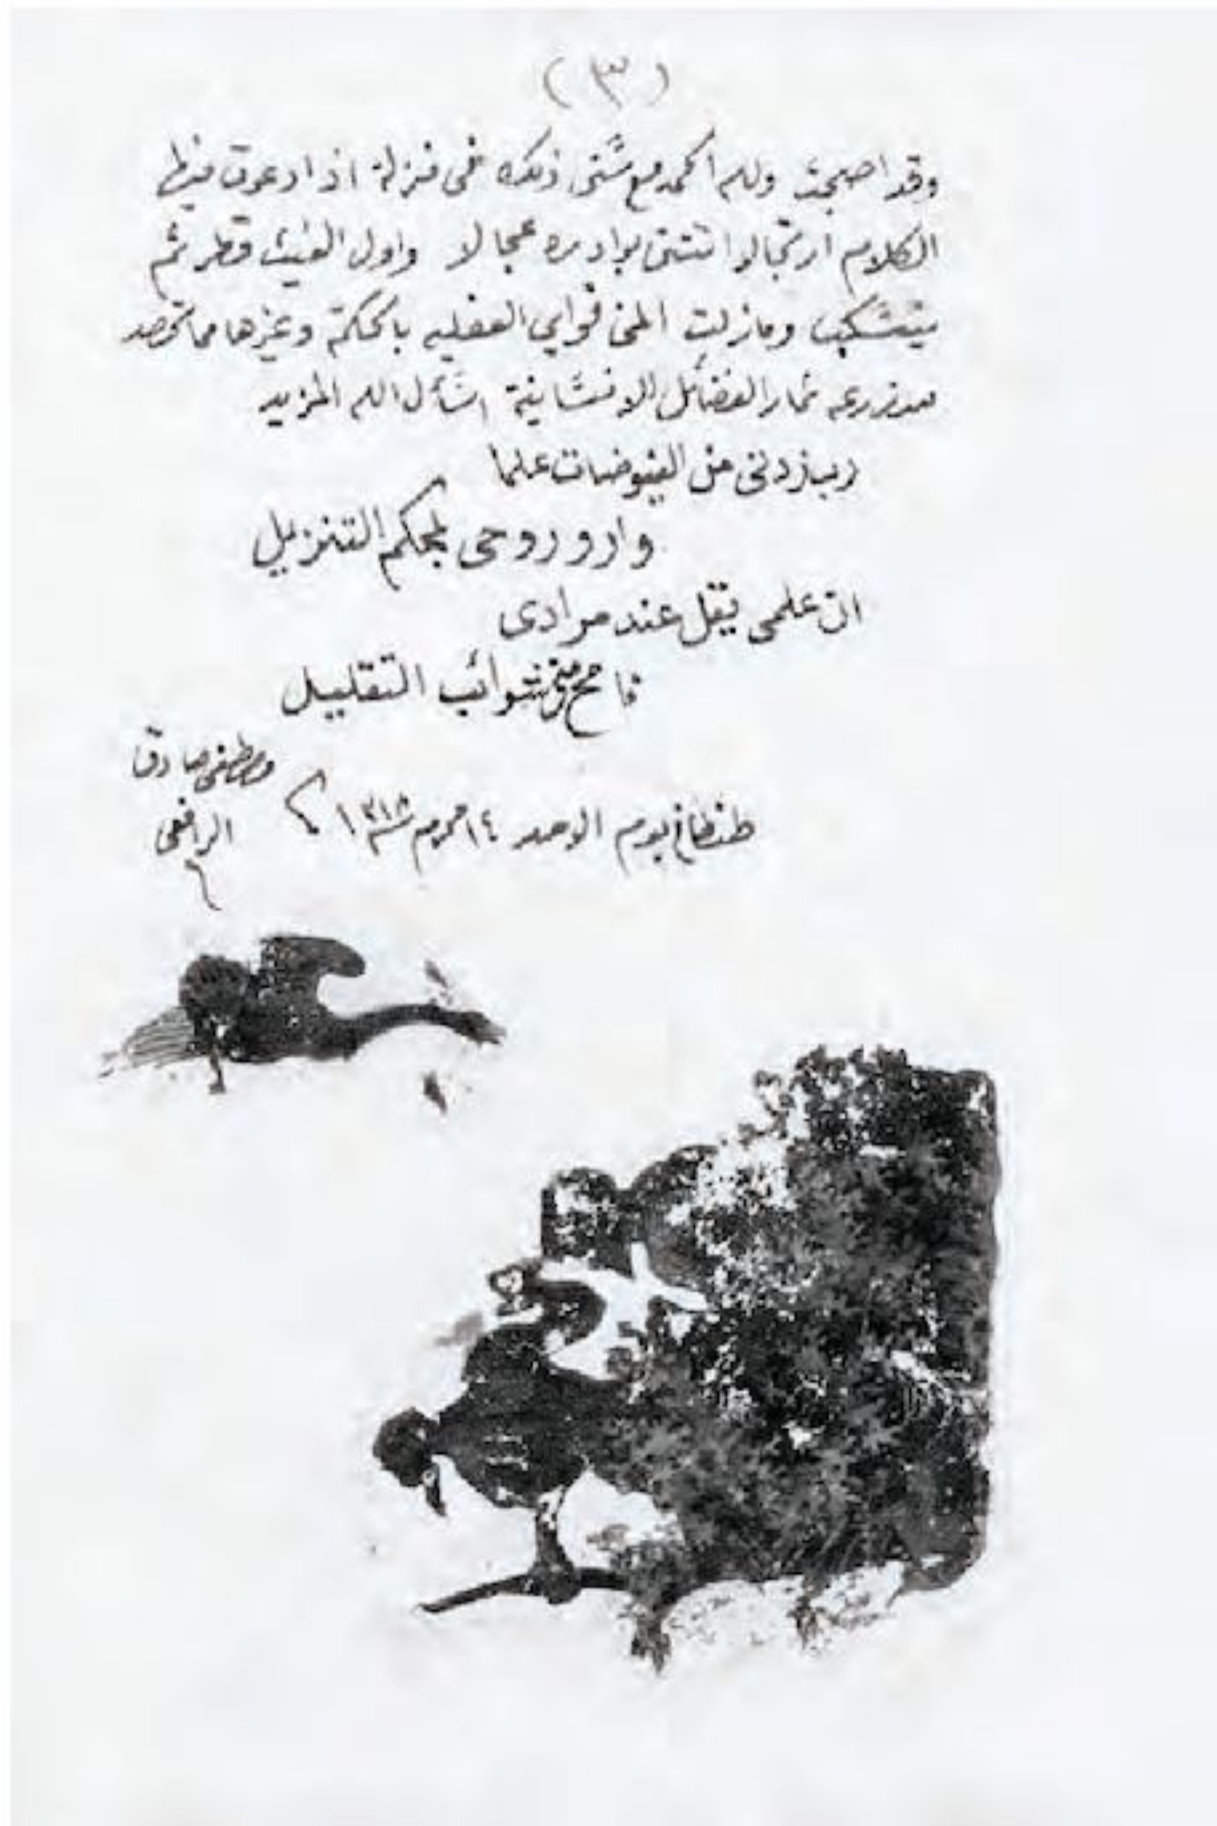 (٣)
وقد اصبحت ولله الحمد مع سنى ذلك فى منزلة اذا دعوت فيها
الكلام ارتجالا انثنى بوادره عجالا واول الغيث قطر ثم
ينسكب وما زلت قواي العقليه بالحكمة وغيرها مما تحصد
من زرعه ثمار الفضائل الانسانية اسأل الله المزيد
رب زدنى من الفيوضات علما
وارو روحى بمحكم التنزيل
ان علمى يقل عند مرادى
فامح عنى شوائب التقليل
طنطا فى يوم الاحد ١٤ محرم سنة ١٣١٨
مصطفى صادق
الرافعى